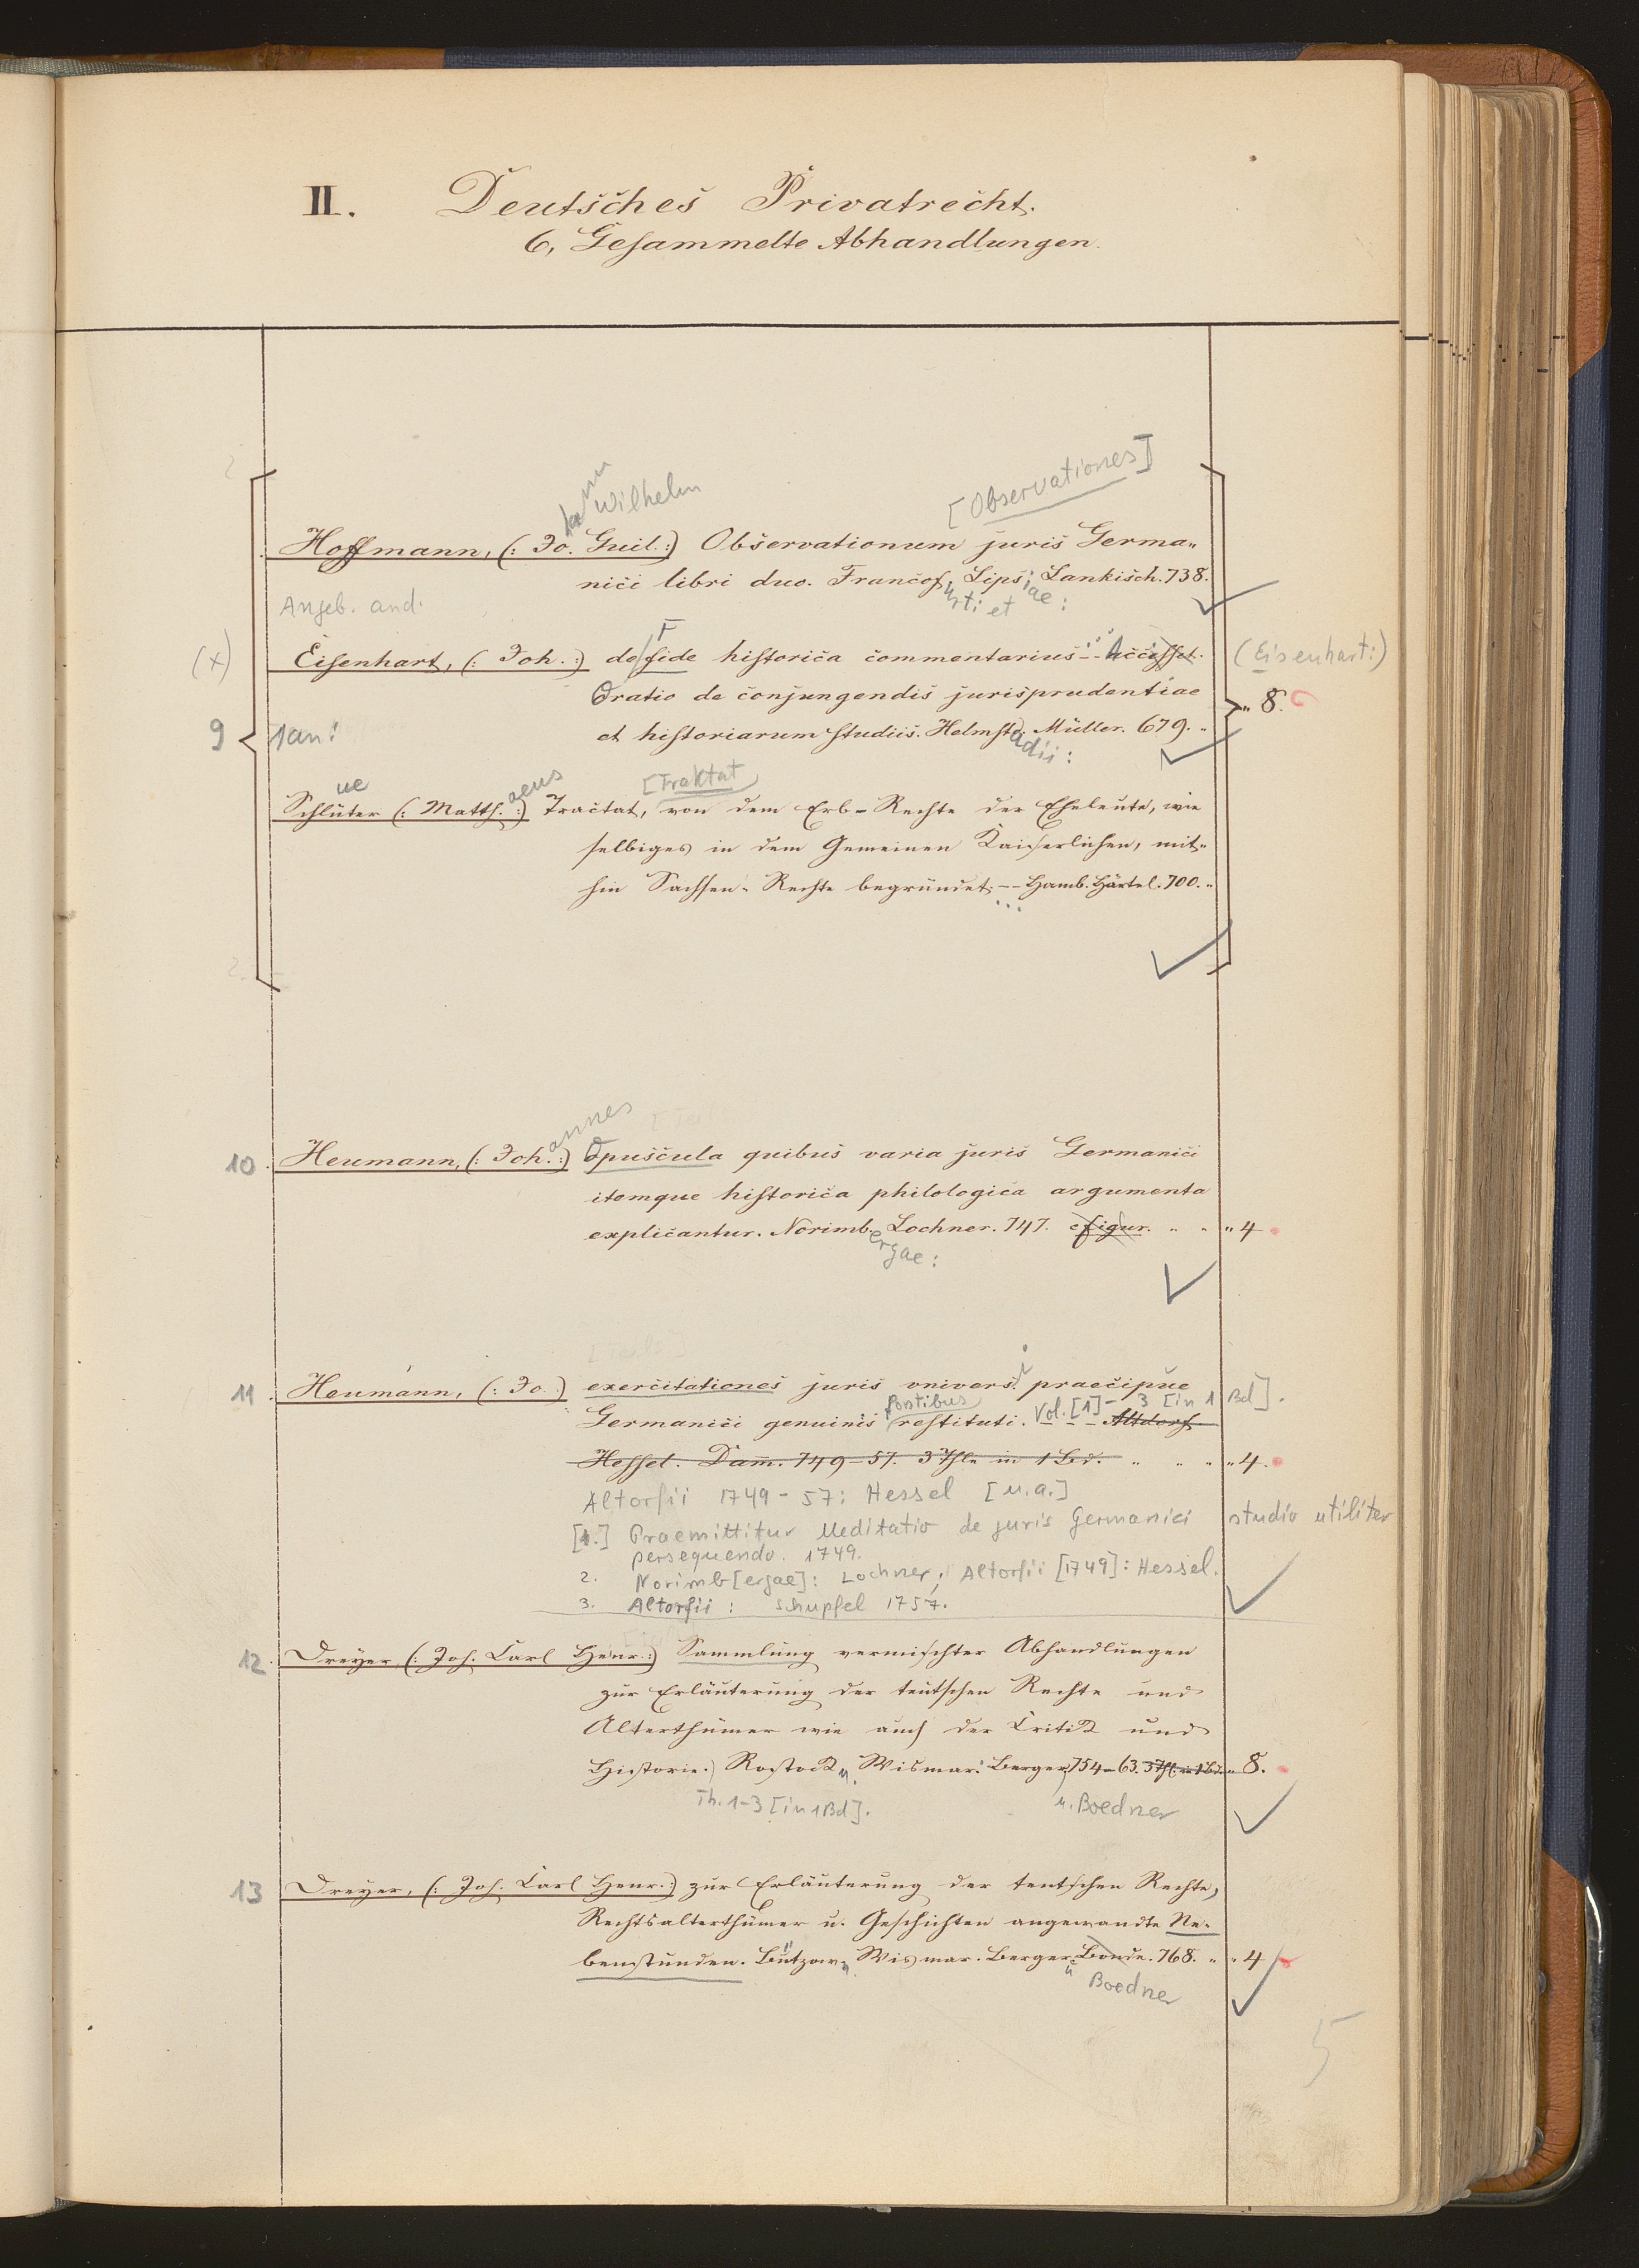 II. Deutsches Privatrecht.
6, Gesammelte Abhandlungen.
nn Wilhelm [Observationes]
Hoffmann, (: Jo. Guil.:) Observationum juris Germa„
nici libri duo. Francof, Lips; Lankisch. 738.
Angeb. and. urti et iae:
(x) Eisenhart, (: Joh. :) de fide historica commentarius -- Accesset. (Eisenhart:)
Oratio de conjungendis jurisprudentiae „ 8.
9 1an: et historiarum studiis. Helmst. Müller. 679. „
adii:
ue aeus [Traktat
Schlüter (: Matth. :) Tractat, von dem Erb-Rechte der Eheleute, wie
selbiges in dem Gemeinen Kaiserlichen, mit„
hin Sachsen-Rechte begründet; -- Hamb. Härtel. 700. „
...
annes
10. Heumann, (: Joh. :) Opuscula quibus varia juris Germanici
itemque historica philologica argumenta
explicantur. Norimb. Lochner. 747. c figur. „ „ „ 4
ergae:
11. Heumann, (: Jo. :) exercitationes juris univers. i praecipue
Germanici genuinis fontibus restituti. Vol. [1] - 3 [in 1 Bd]. Altdorf.
Hessel. Dam. 749-57. 3 Thle in 1 Bd. „ „ „ „ 4.
Altorfii 1749-57: Hessel [u.a.]
[1.] Praemittitur Meditatio de juris Germanici studio utiliter
persequendo. 1749.
2. Norimb[ergae]: Lochner; Altorfii [1749]: Hessel.
3. Altorfii: Schupfel 1757.
12. Dreyer, (: Joh. Carl Henr. :) Sammlung vermischter Abhandlungen
zur Erläuterung der teutschen Rechte und
Alterthümer wie auch der Critik und
Historie. Rostock u. Wismar: Berger, 754-63. 3 Thl. in 1 Bd. „ 8.
Th. 1-3 [in 1 Bd]. u. Boedner
13 Dreyer, (: Joh. Carl Henr. :) zur Erläuterung der teutschen Rechte,
Rechtsalterthümer u. Geschichten angewandte Ne-
benstunden. Bützow u. Wismar. Berger. Bonde. 768. „ „ 4
u Boedner
5